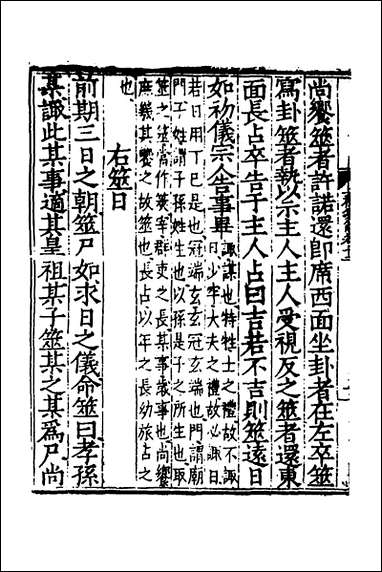 尚饗筮者許諾還即席西面坐卦者在左卒筮
寫卦筮者執以示主人主人受視反之筮者還東
面長占卒告于主人占曰吉若不吉則筮遠日
如初儀宗人告事畢
諏謀也特牲士之禮故不諏
日少牢大夫之禮故必諏日
若日用丁巳是也冠端玄玄冠玄端也門謂廟
門某姓謂子孫姓生也以孫是子之所生也取
筮之
宰群吏之長其事歲事也尚饗
庶幾其饗之故筮也長占以年之長幼旅占之
也
右筮日
前期三日之朝筮尸如求日之儀命筮曰孝孫
某諏此某事適其皇祖某子筮某之某為尸尚